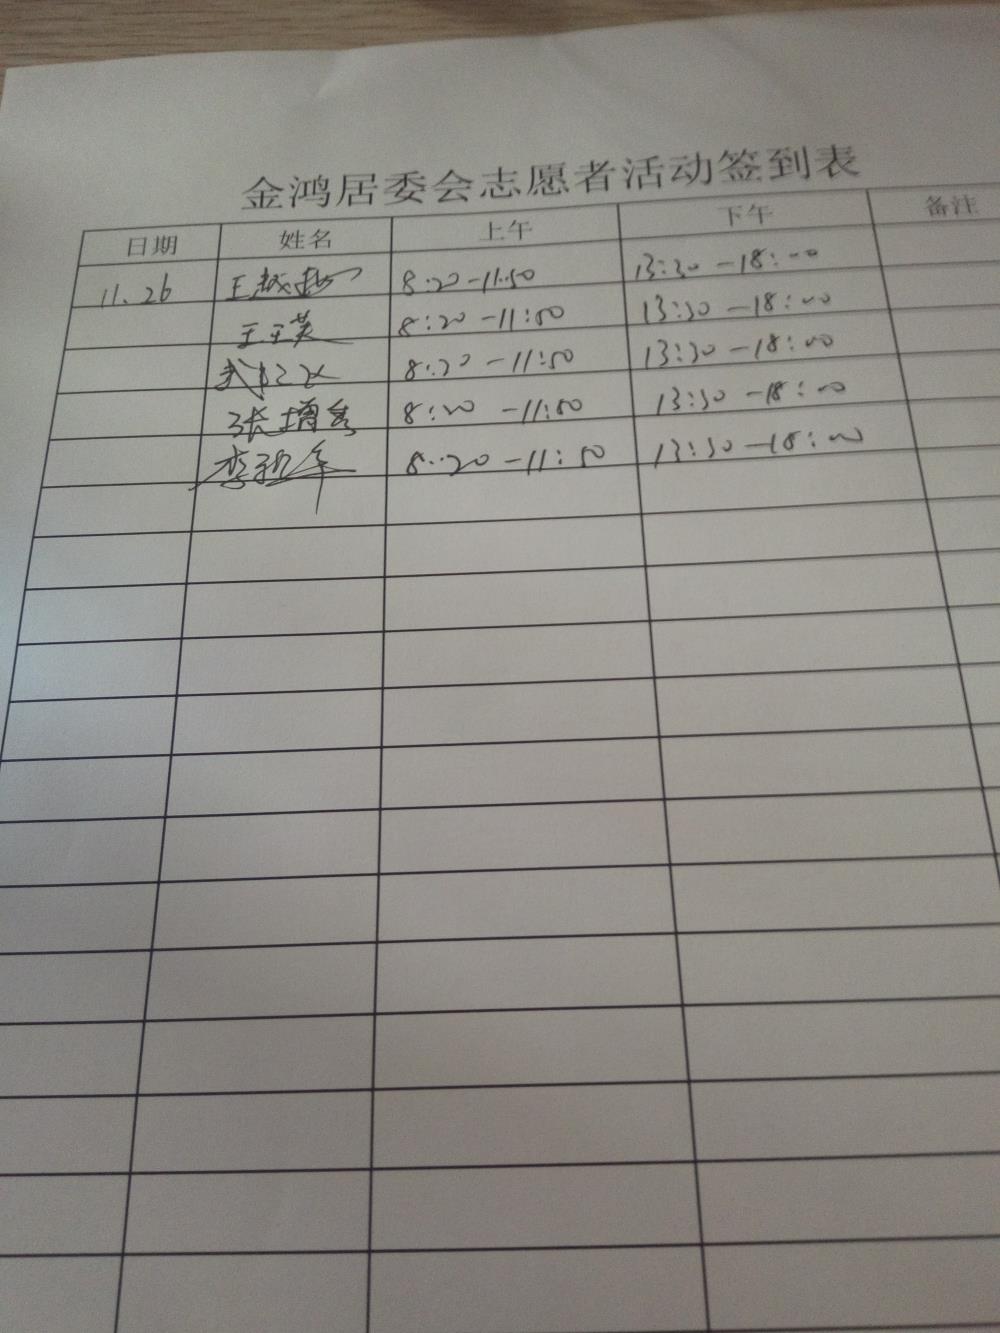 金鸿居委会志愿者活动签到表
日期 姓名 上午 下午 备注
11.26 王 8:20-11:50 13:30-18:00
王玉英 8:20-11:50 13:30-18:00
武 8:20-11:50 13:30-18:00
张增秀 8:20-11:50 13:30-18:00
李 年 8:20-11:50 13:30-18:00